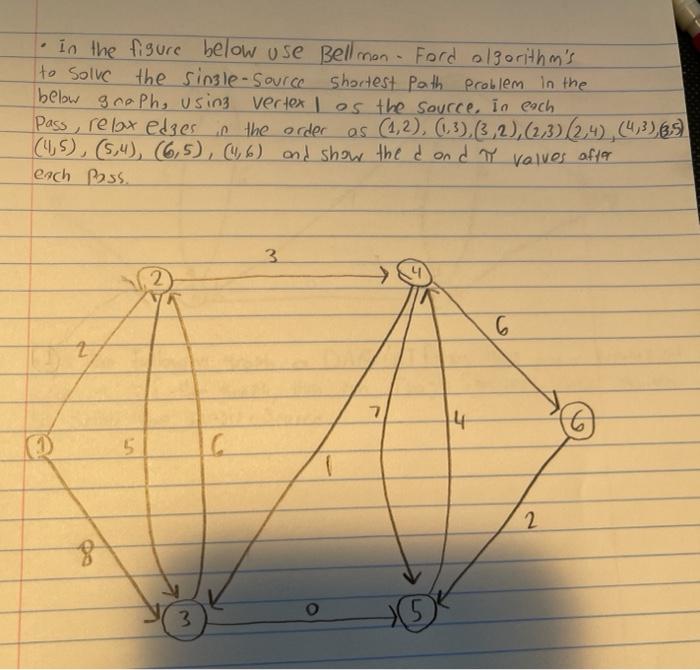 • In the figure below use Bellman - Ford algorithm's
to solve the single-source shortest path problem in the
below graph, using vertex 1 as the source. In each
pass, relax edges in the order as (1,2), (1,3), (3,2), (2,3) (2,4), (4,3), (3,5)
(4,5), (5,4), (6,5), (4,6) and show the d and π values after
each pass.
3
2
4
6
2
7
4
6
1
5
6
1
2
8
0
3
5